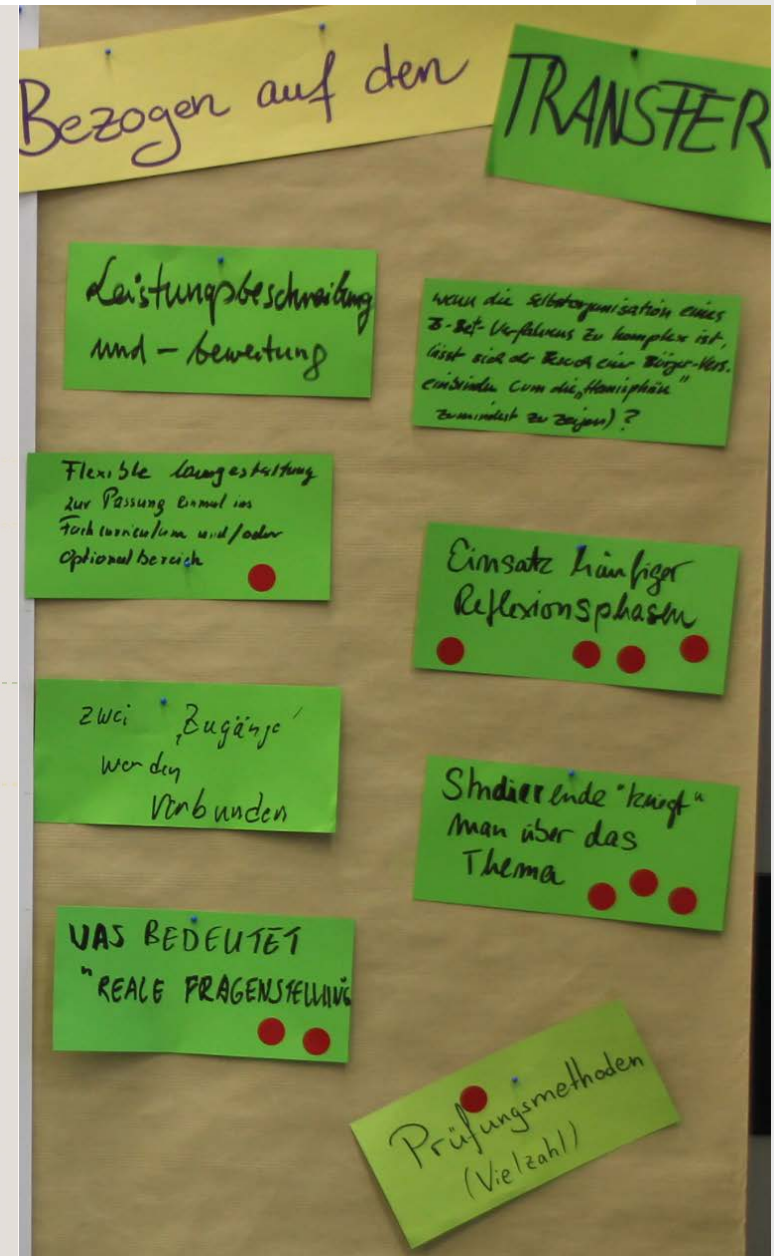 Bezogen auf den TRANSFER
Leistungsbeschreibung
und - bewertung
wenn die Selbstorganisation eines
B-Bet-Verfahrens zu komplex ist,
lässt sich der Besuch einer Bürger-Vers.
einbinden (um die "
zumindest zu zeigen)?
Flexible
zur Passung einmal ins
Fachcurriculum und/oder
Optionalbereich
Einsatz häufiger
Reflexionsphasen
zwei 'Zugänge'
werden
verbunden
Studierende "kriegt"
man über das
Thema
WAS BEDEUTET
"REALE FRAGENSTELLUNG
Prüfungsmethoden
(Vielzahl)